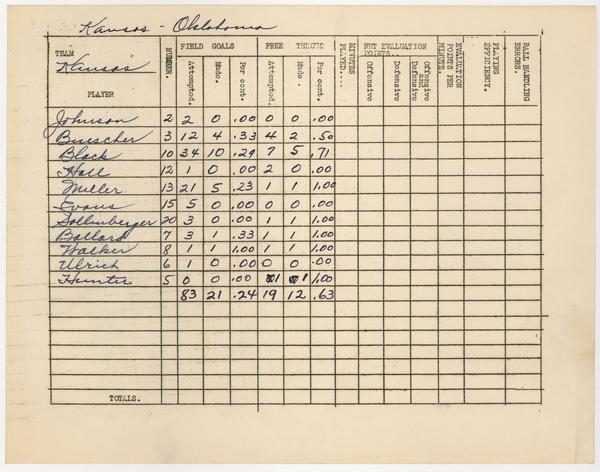 Kansas - Oklahoma
TEAM NUMBER. FIELD GOALS FREE THROWS MINUTES PLAYED.... NET EVALUATION POINTS.. EVALUATION POINTS PER MINUTE. PLAYING EFFICIENCY. BALL HANDLING ERRORS.
Kansas Attempted. Made. Per cent. Attempted. Made. Per cent. Offensive Defensive Offensive and Defensive
PLAYER
Johnson 2 2 0 .00 0 0 .00
Buescher 3 12 4 .33 4 2 .50
Black 10 34 10 .29 7 5 .71
Hall 12 1 0 .00 2 0 .00
Miller 13 21 5 .23 1 1 1.00
Evans 15 5 0 .00 0 0 .00
Dollinberger 20 3 0 .00 1 1 1.00
Ballard 7 3 1 .33 1 1 1.00
Walker 8 1 1 1.00 1 1 1.00
Ulrich 6 1 0 .00 0 0 .00
Hunter 5 0 0 .00 1 1 1.00
83 21 .24 19 12 .63
TOTALS.